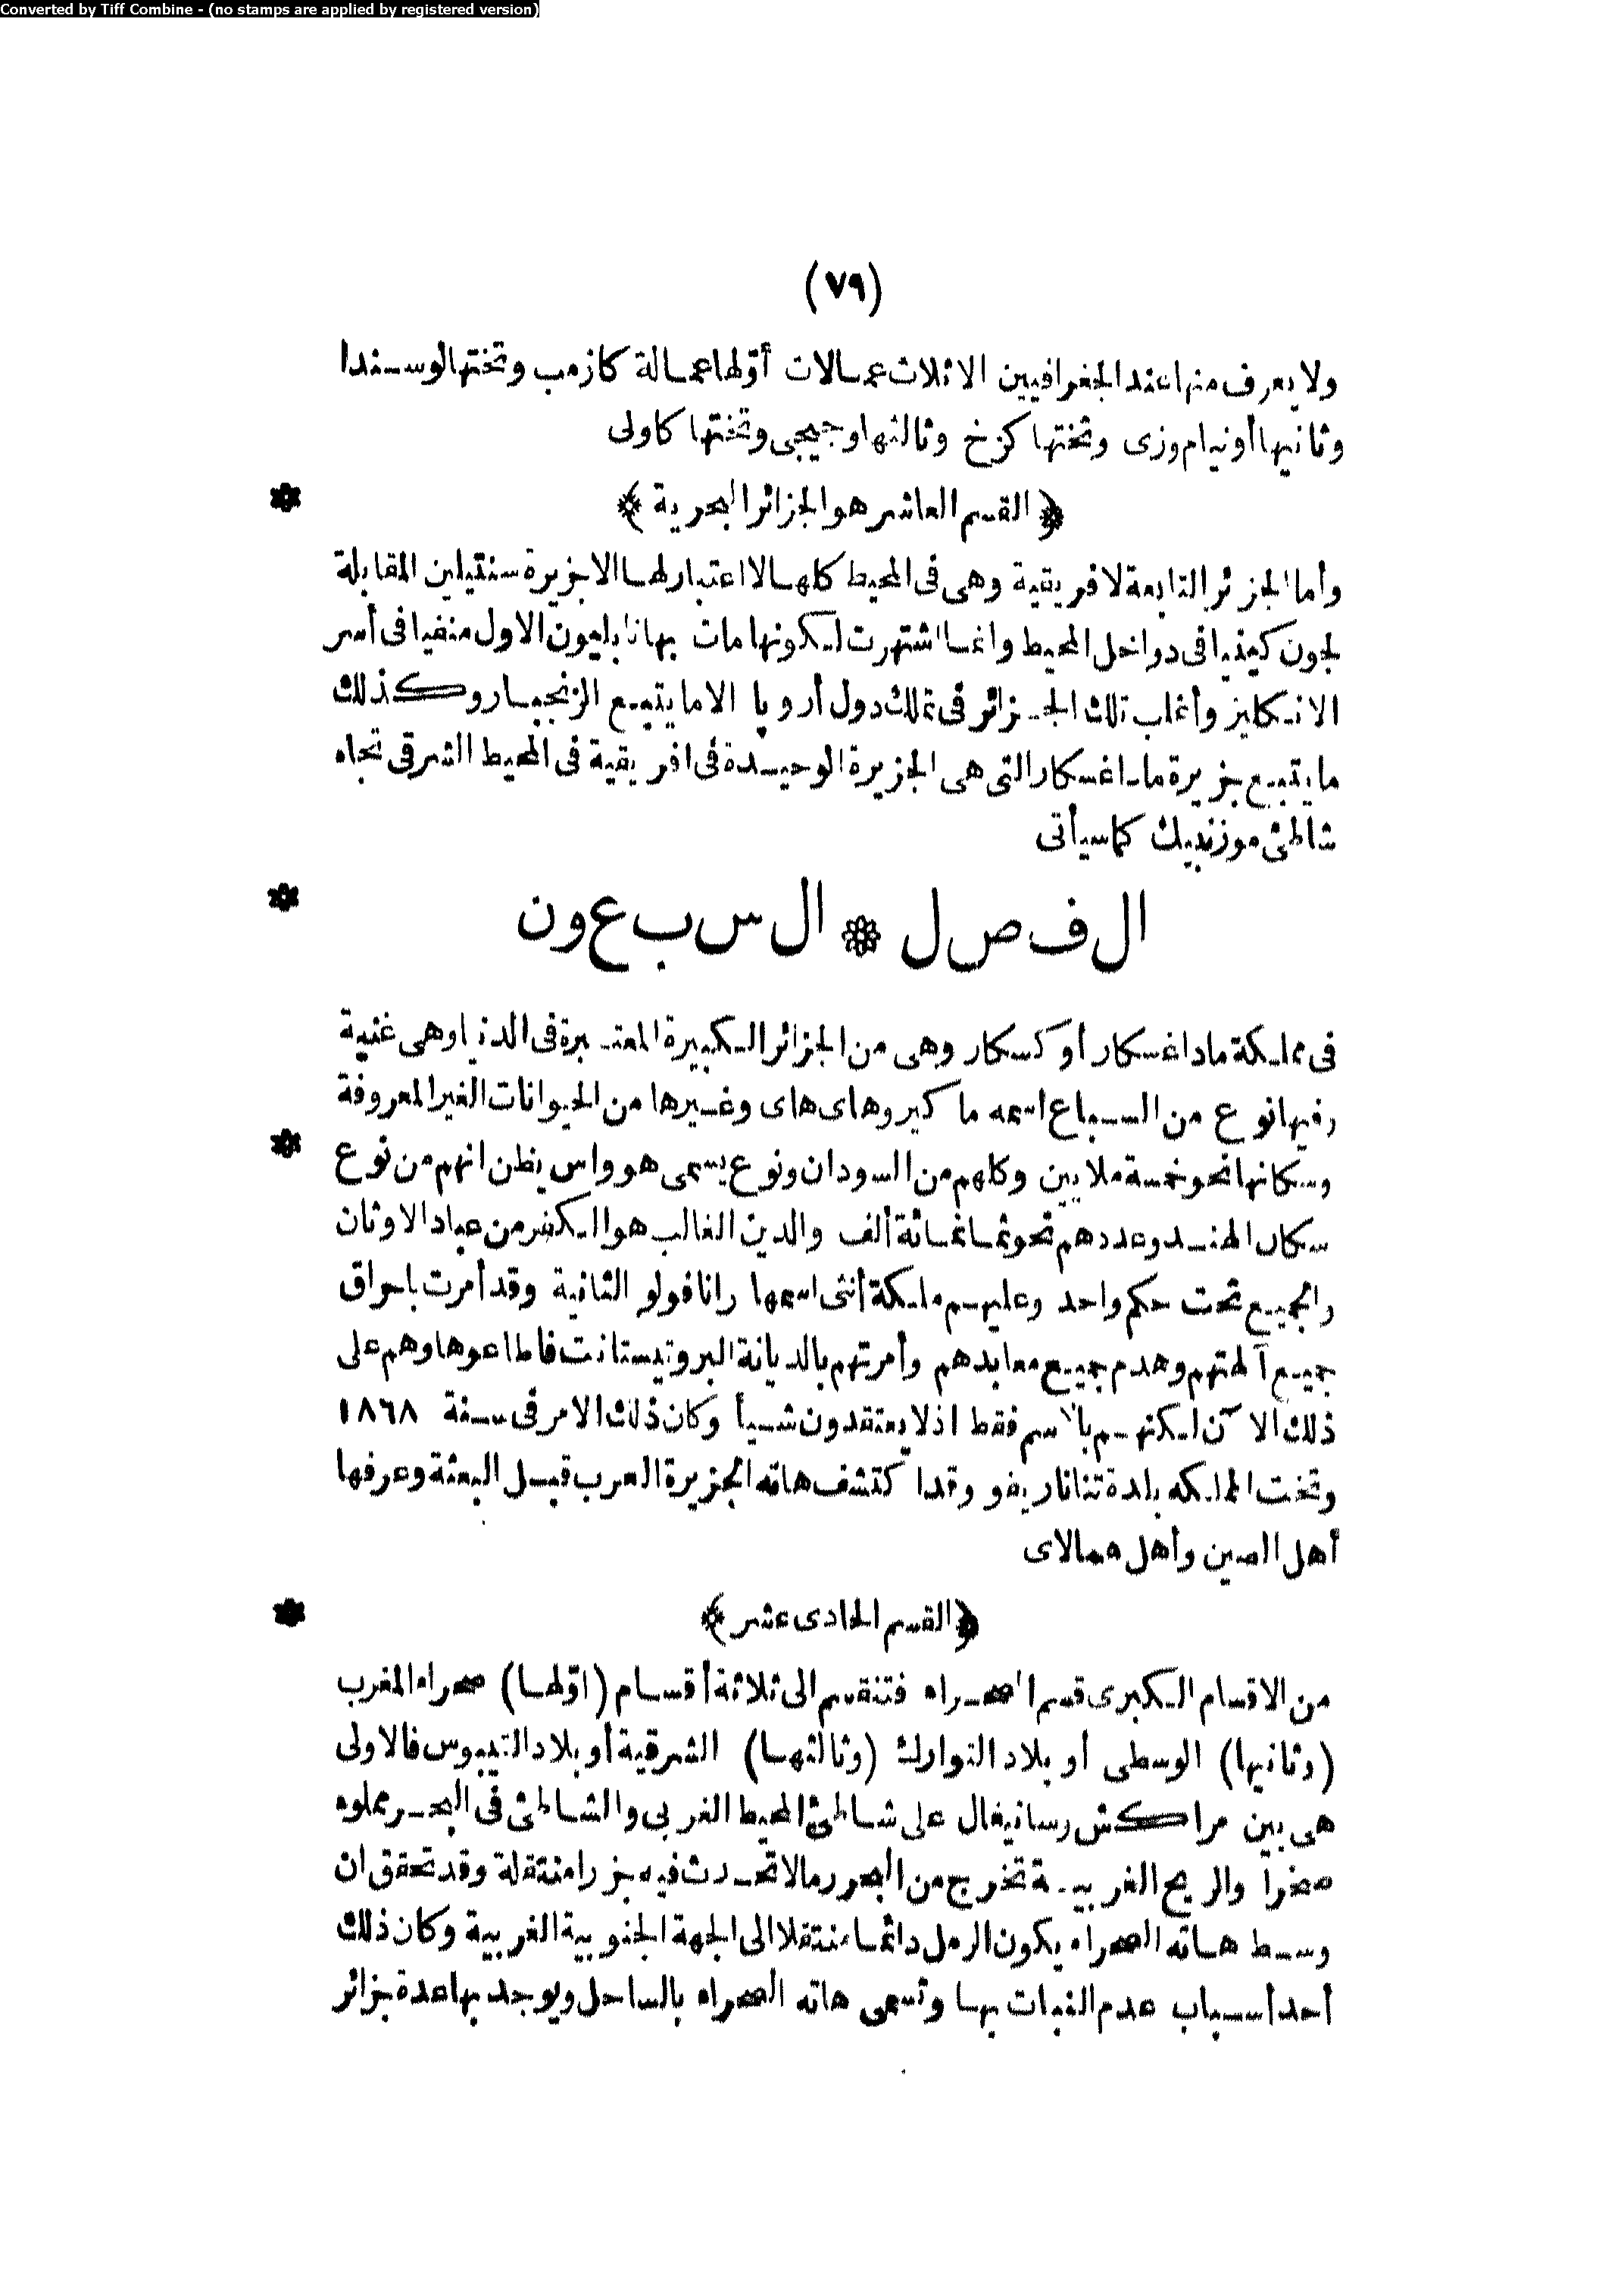 Converted by Tiff Combine - (no stamps are applied by registered version)
(٧٩)
ولا يعرف منها عند الجغرافيين الا ثلاث عمالات أوّلها عمالة كازمب وتختها لوسندا
وثانيها أونيام وزى وتختها كزخ وثالثها وجيجى وتختها كاولى
﴿ القسم العاشر هو الجزائر البحرية ﴾ *
وأما الجزائر التابعة لافريقية وهى فى المحيط كلها لا اعتبار لها الا جزيرة سنتيلين المقابلة
لجون كينيا فى دواخل المحيط وانما اشتهرت لكونها مات بها نابليون الاول منفيا فى أسر
الانكليز وأغلب تلك الجزائر فى تملك دول أروپا الا ما يتبع الزنجبار وكذلك
ما يتبع جزيرة ماداغسكار التى هى الجزيرة الوحيدة فى افريقية فى المحيط الشرقى تجاه
شاطئ موزنبيك كما سيأتى
الفصل * السبعون *
فى مملكة ماداغسكار أو كسكار وهى من الجزائر الكبيرة المعتبرة فى الدنيا وهى غنية
وفيها نوع من السباع اسمه ماكيروهاى هاى وغيرها من الحيوانات الغير المعروفة
وسكانها نحو خمسة ملايين وكلهم من السودان ونوع يسمى هوواس يظن انهم من نوع *
سكان الهند وعددهم نحو ثمانمائة ألف والدين الغالب هو الكفر من عباد الاوثان
والجميع تحت حكم واحد وعليهم ملكة أنثى اسمها رانافولو الثانية وقد أمرت باحراق
جميع آلهتهم وهدم جميع معابدهم وأمرتهم بالديانة البروتيستانت فاطاعوها وهم على
ذلك الاآن لكنهم بالاسم فقط اذ لا يعتقدون شيأ وكان ذلك الامر فى سنة ١٨٦٨
وتخت المملكه بلدة تناناريفو وقد اكتشف هاته الجزيرة العرب قبل البعثة وعرفها
أهل الصين وأهل همالاى
﴿القسم الحادى عشر﴾ *
من الاقسام الكبرى قسم الصحراء فتنقسم الى ثلاثة أقسام (اوّلها) صحراء المغرب
(وثانيها) الوسطى أو بلاد التوارك (وثالثها) الشرقية أو بلاد التيبوس فالاولى
هى بين مراكش وسانيغال على شاطئ المحيط الغربى والشاطئ فى البحر مملوء
صخرا والريح الغربية تخرج من البحر رمالا تحدث فيه جزرا منتقلة وقد تحقق ان
وسط هاته الصحراء يكون الرمل دائما منتقلا الى الجهة الجنوبية الغربية وكان ذلك
أحد أسباب عدم النبات بها وتسمى هاته الصحراء بالساحل ويوجد بها عدة جزائر